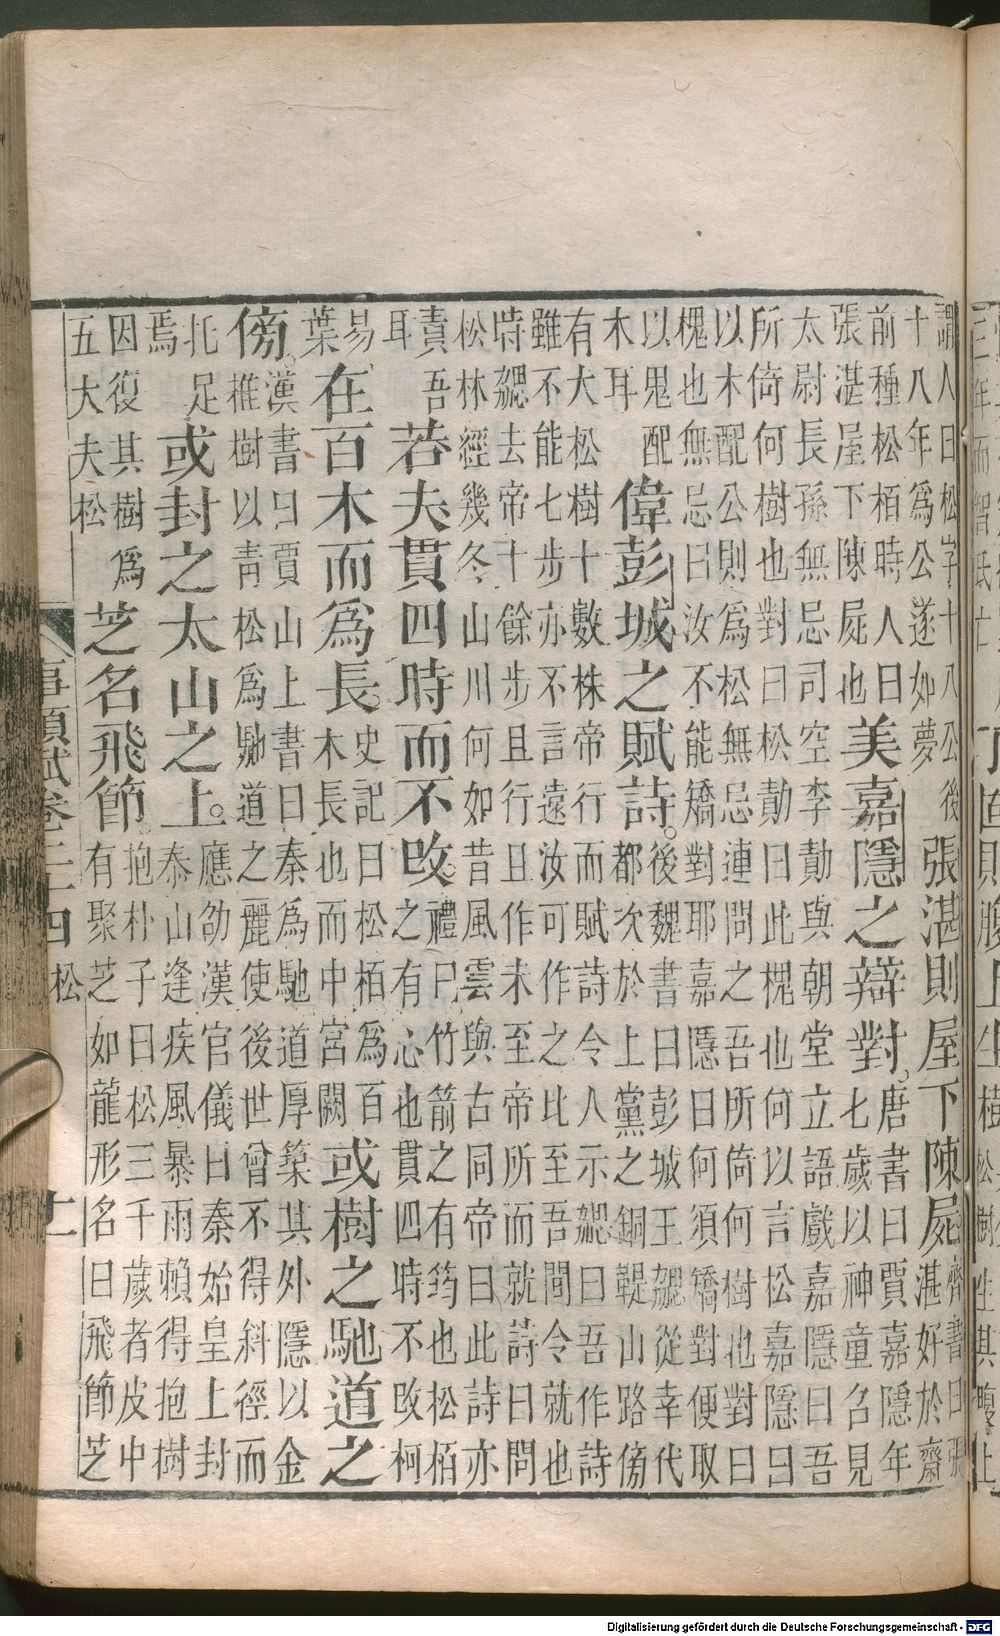 謂人曰松字十八公後
十八年爲公遂如夢
張湛則屋下陳屍
齊書曰張
湛好於齋
前種松栢時人曰
張湛屋下陳屍也
美嘉隱之辯對。
唐書曰賈嘉隱年
七歲以神童召見
太尉長孫無忌司空李勣與朝堂立語戲嘉隱曰吾
所倚何樹也對曰松勣曰此槐也何以言松嘉隱曰
以木配公則爲松無忌連問之吾所倚何樹也對曰
槐也無忌曰汝不能矯對耶嘉隱曰何須矯對便取
以鬼配
木耳
偉彭城之賦詩。
後魏書曰彭城王勰從幸代
都次於上黨之銅鞮山路傍
有大松樹十數株帝行而賦詩令人示勰曰吾作詩
雖不能七步亦不言遠汝可作之比至吾間令就也
時勰去帝十餘步且行且作未至帝所而就詩曰問
松林經幾冬山川何如昔風雲與古同帝曰此詩亦
責吾
耳
若夫貫四時而不改。
禮曰竹箭之有筠也松栢
之有心也貫四時不改柯
易
葉
在百木而爲長。
史記曰松栢爲百
木長也而中宮闕
或樹之馳道之
傍。
漢書曰賈山上書曰秦爲馳道厚築其外隱以金
推樹以青松爲馳道之麗使後世曾不得斜徑而
托足
焉
或封之太山之上。
應劭漢官儀曰秦始皇上封
泰山逢疾風暴雨賴得抱樹
因復其樹爲
五大夫松
芝名飛節。
抱朴子曰松三千歲者皮中
有聚芝如龍形名曰飛節芝
事類賦卷二十四 松
Digitalisierung gefördert durch die Deutsche Forschungsgemeinschaft - DFG